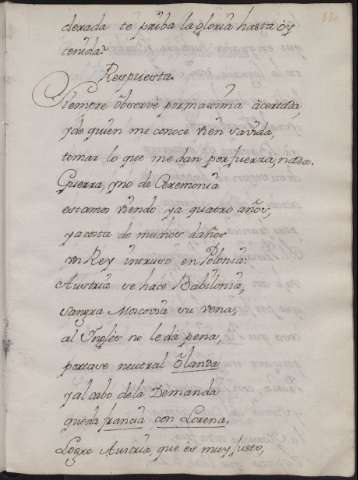 derada te priba la gloria hasta oy
tenida?
Respuesta.
Siempre observè por maxima acertada,
y de quien me conoce bien savida,
tomar lo que me dan por fuerza, nada.
Guerra, y no de Ceremonia
estamos viendo ya quatro años,
y a costa de muchos daños
un Rey intruso en Polonia:
Austria se hace Babilonia,
sangra Moscovia su vena,
al Ynglès no le dà pena,
portase neutral Olanda
y al cabo de la Demanda
queda francia con Lorena.
Logre Austria, que es muy justo,